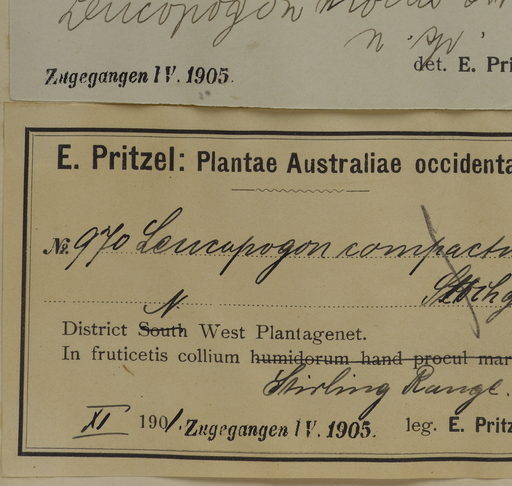 Leucopogon
n. sp.
Zugegangen IV. 1905.
det. E. Pri
E. Pritzel: Plantae Australiae occidenta
№ 970 Leucopogon compactu
Stschg
N
District South West Plantagenet.
In fruticetis collium humidorum hand procul mar
Stirling Range.
XI 1901. Zugegangen IV. 1905. leg. E. Pritz